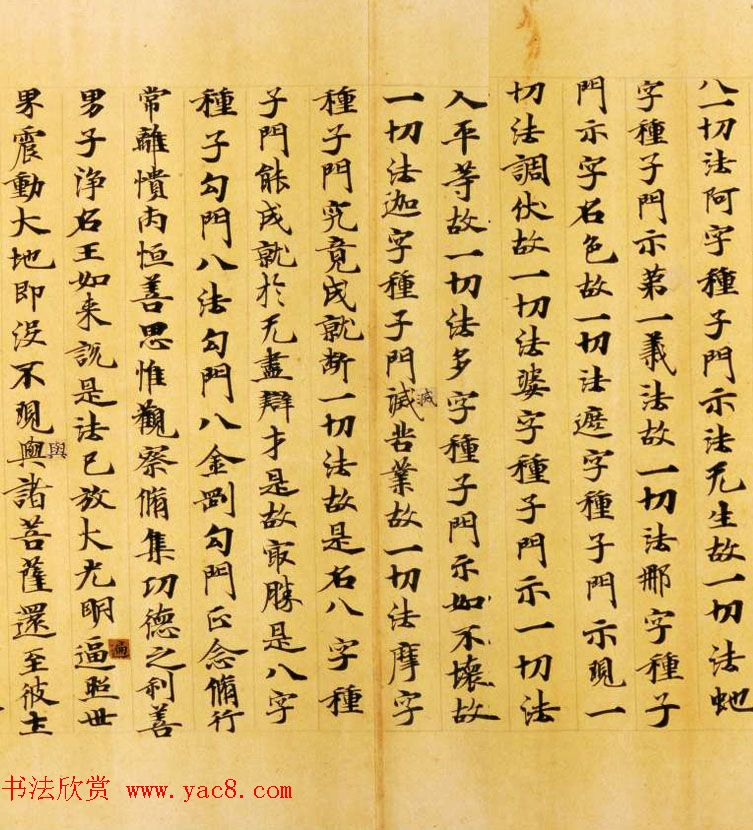 一切法阿字種子門示法无生故一切法虵
字種子門示第一義法故一切法那字種子
門示字名色故一切法遮字種子門示現一
切法調伏故一切法娑字種子門示一切法
入平等故一切法多字種子門示如不壞故
一切法迦字種子門滅業故一切法摩字
種子門究竟成就断一切法故是名八字種
子門能成就於无盡辯才是故㝡勝是八字
種子勾門八法勾門八金剛勾門正念脩行
常離憒丙恒善思惟觀察脩集功德之利善
男子浄名王如来說是法已放大光明逼照世
界震動大地即没不現與諸菩薩還至彼土
與
书法欣赏 www.yac8.com